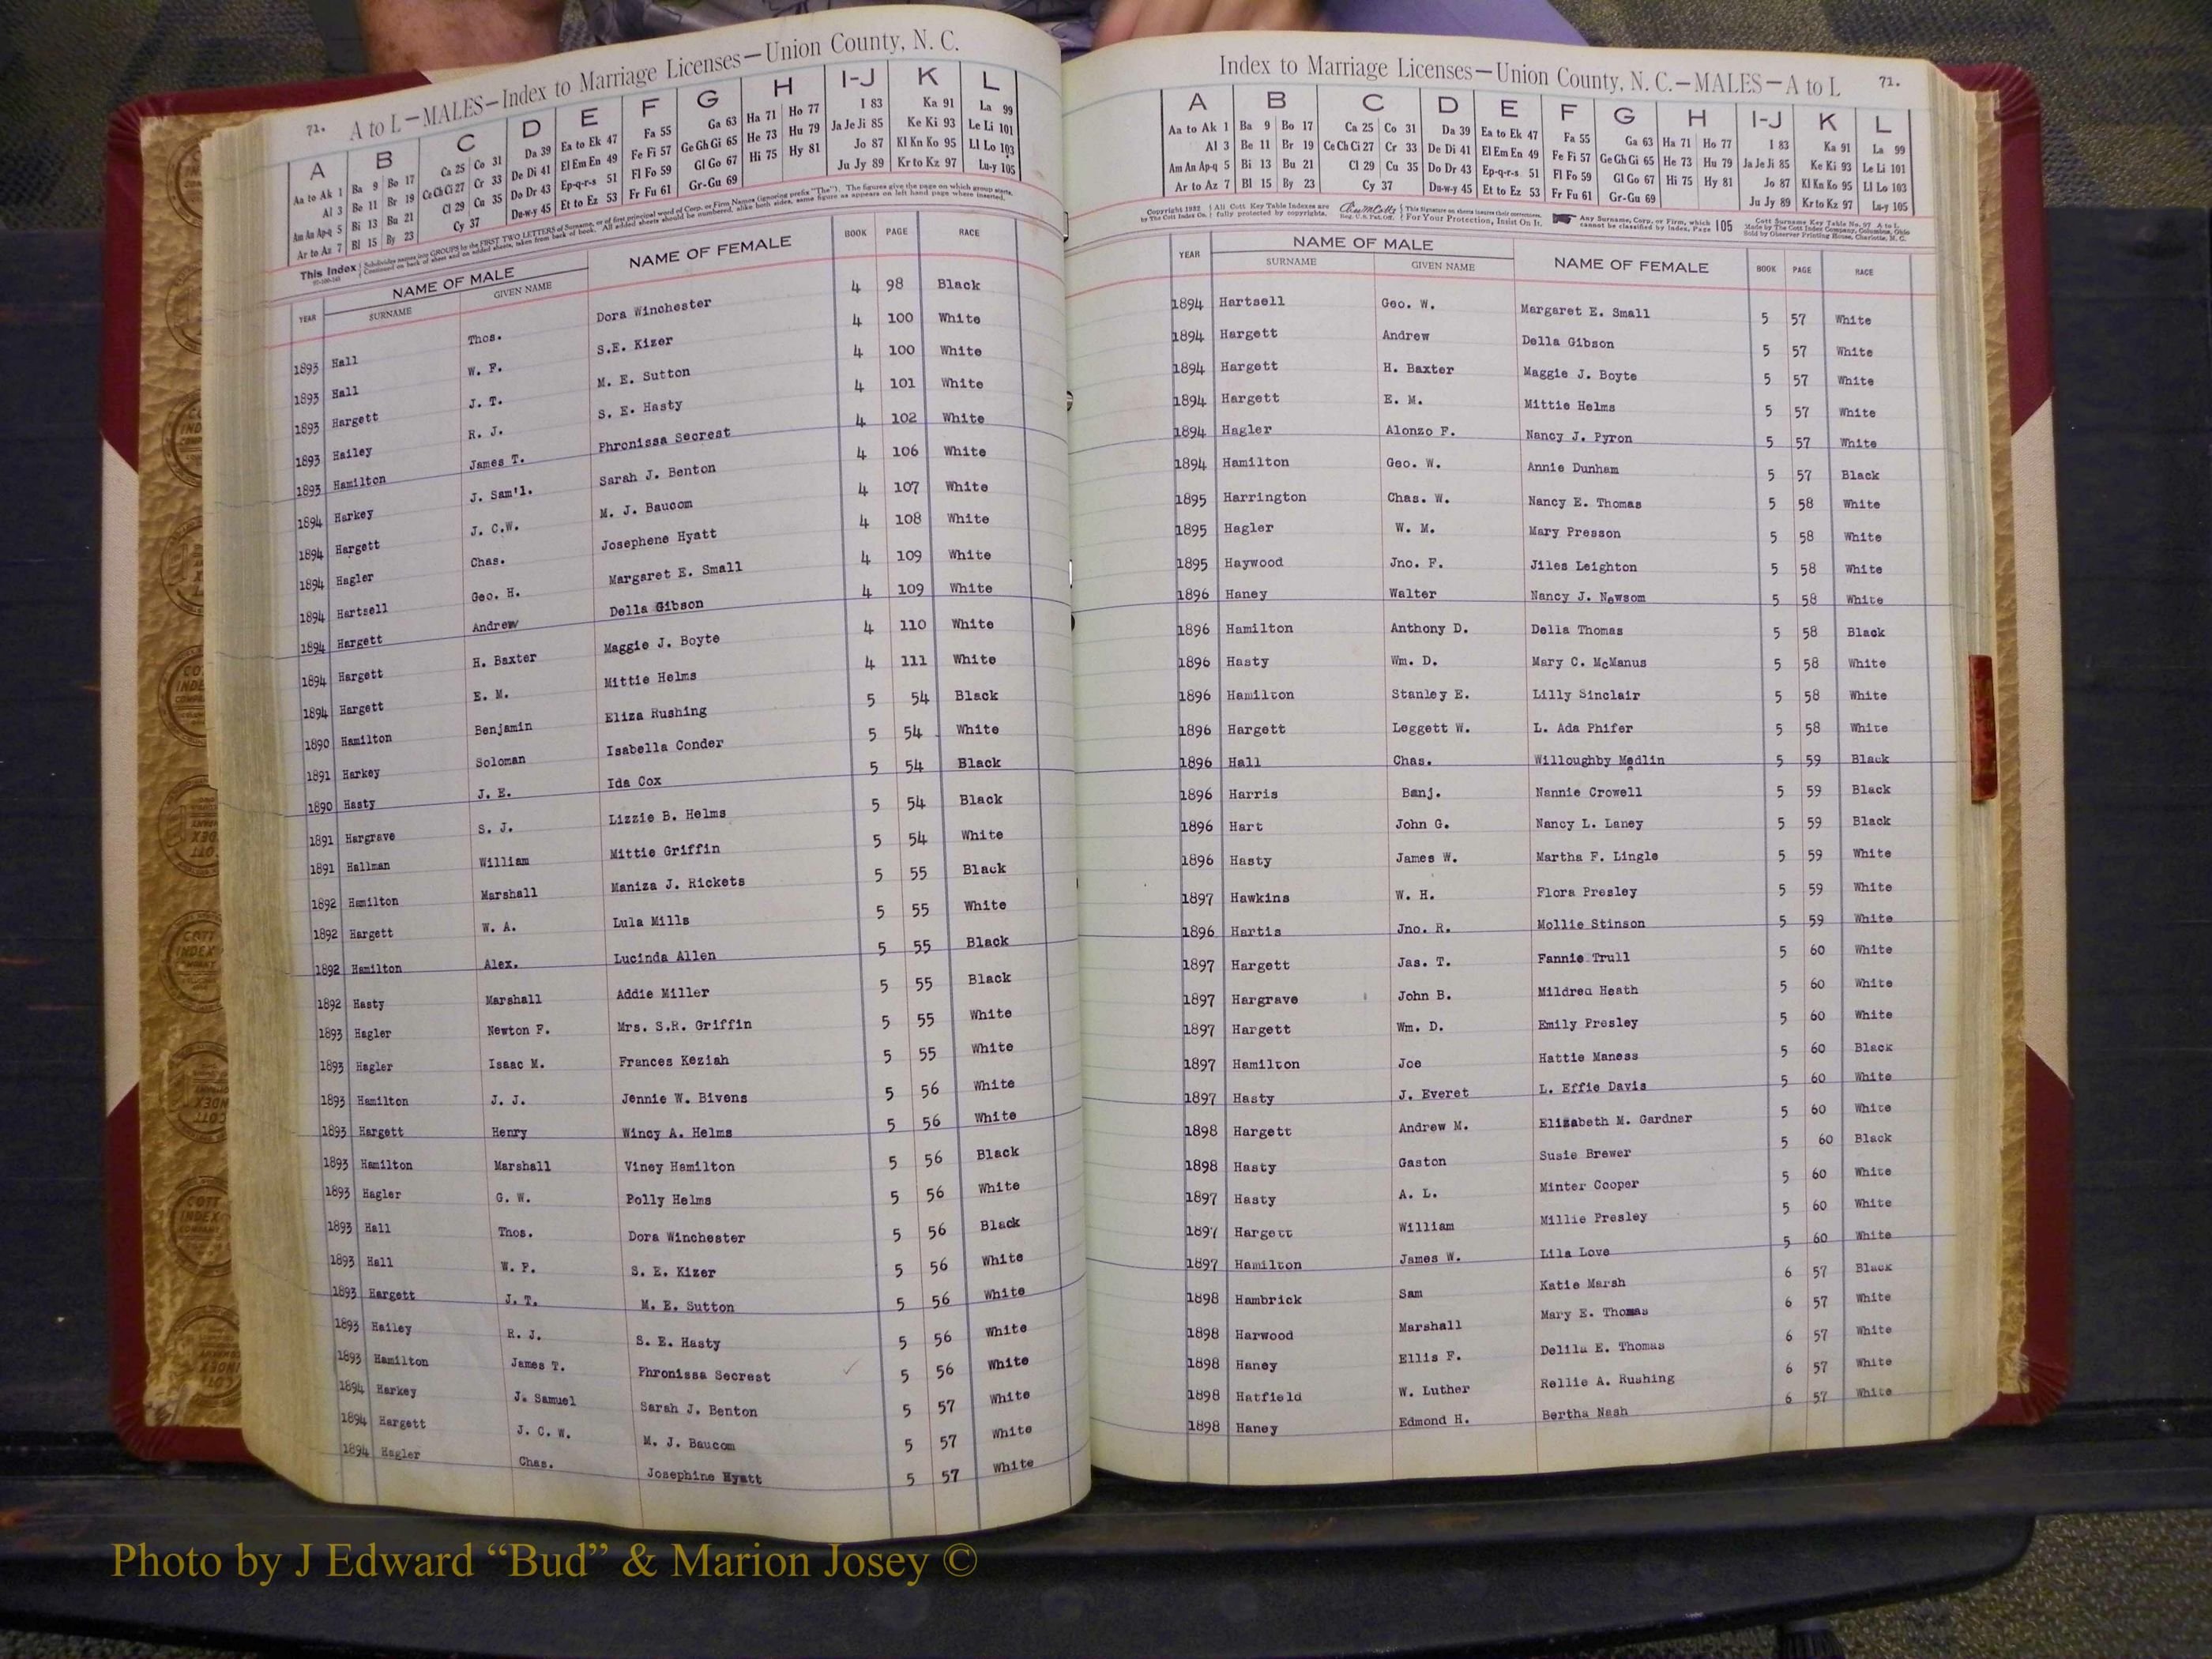 71. A to L—MALES—Index to Marriage Licenses—Union County, N. C.
A B C D E F G H I-J K L
Aa to Ak 1 Ba 9 Bo 17 Ca 25 Co 31 Da 39 Ea to Ek 47 Fa 55 Ga 63 Ha 71 Ho 77 I 83 Ka 91 La 99
Al 3 Be 11 Br 19 Ce Ch Ci 27 Cr 33 De Di 41 El Em En 49 Fe Fi 57 Ge Gh Gi 65 He 73 Hu 79 Ja Je Ji 85 Ke Ki 93 Le Li 101
Am An Ap-q 5 Bi 13 Bu 21 Cl 29 Cu 35 Do Dr 43 Ep-q-r-s 51 Fl Fo 59 Gl Go 67 Hi 75 Hy 81 Jo 87 Kl Kn Ko 95 Ll Lo 103
Ar to Az 7 Bl 15 By 23 Cy 37 Du-w-y 45 Et to Ez 53 Fr Fu 61 Gr-Gu 69 Ju Jy 89 Kr to Kz 97 Lu-y 105
This Index Subdivides names into GROUPS by the FIRST TWO LETTERS of Surname, or of first principal word of Corp. or Firm Names (ignoring prefix "The"). The figures give the page on which group starts.
Continued on back of sheet and on added sheets, taken from back of book. All added sheets should be numbered, alike both sides, same figure as appears on left hand page where inserted.
YEAR NAME OF MALE SURNAME GIVEN NAME NAME OF FEMALE BOOK PAGE RACE
1893 Hall Thos. Dora Winchester 4 98 Black
1893 Hall W. F. S.E. Kizer 4 100 White
1893 Hargett J. T. M. E. Sutton 4 100 White
1893 Hailey R. J. S. E. Hasty 4 101 White
1893 Hamilton James T. Phronissa Secrest 4 102 White
1894 Harkey J. Sam'l. Sarah J. Benton 4 106 White
1894 Hargett J. C.W. M. J. Baucom 4 107 White
1894 Hagler Chas. Josephene Hyatt 4 108 White
1894 Hartsell Geo. H. Margaret E. Small 4 109 White
1894 Hargett Andrew Della Gibson 4 109 White
1894 Hargett H. Baxter Maggie J. Boyte 4 110 White
1894 Hargett E. M. Mittie Helms 4 111 White
1890 Hamilton Benjamin Eliza Rushing 5 54 Black
1891 Harkey Soloman Isabella Conder 5 54 White
1890 Hasty J. E. Ida Cox 5 54 Black
1891 Hargrave S. J. Lizzie B. Helms 5 54 Black
1891 Hallman William Mittie Griffin 5 54 White
1892 Hamilton Marshall Maniza J. Rickets 5 55 Black
1892 Hargett W. A. Lula Mills 5 55 White
1892 Hamilton Alex. Lucinda Allen 5 55 Black
1892 Hasty Marshall Addie Miller 5 55 Black
1893 Hagler Newton F. Mrs. S.R. Griffin 5 55 White
1893 Hagler Isaac M. Frances Keziah 5 55 White
1893 Hamilton J. J. Jennie W. Bivens 5 56 White
1893 Hargett Henry Wincy A. Helms 5 56 White
1893 Hamilton Marshall Viney Hamilton 5 56 Black
1893 Hagler G. W. Polly Helms 5 56 White
1893 Hall Thos. Dora Winchester 5 56 Black
1893 Hall W. P. S. E. Kizer 5 56 White
1893 Hargett J. T. M. E. Sutton 5 56 White
1893 Hailey R. J. S. E. Hasty 5 56 White
1893 Hamilton James T. Phronissa Secrest 5 56 White
1894 Harkey J. Samuel Sarah J. Benton 5 57 White
1894 Hargett J. C. W. M. J. Baucom 5 57 White
1894 Hagler Chas. Josephine Hyatt 5 57 White
Index to Marriage Licenses—Union County, N. C.—MALES—A to L 71.
A B C D E F G H I-J K L
Aa to Ak 1 Ba 9 Bo 17 Ca 25 Co 31 Da 39 Ea to Ek 47 Fa 55 Ga 63 Ha 71 Ho 77 I 83 Ka 91 La 99
Al 3 Be 11 Br 19 Ce Ch Ci 27 Cr 33 De Di 41 El Em En 49 Fe Fi 57 Ge Gh Gi 65 He 73 Hu 79 Ja Je Ji 85 Ke Ki 93 Le Li 101
Am An Ap-q 5 Bi 13 Bu 21 Cl 29 Cu 35 Do Dr 43 Ep-q-r-s 51 Fl Fo 59 Gl Go 67 Hi 75 Hy 81 Jo 87 Kl Kn Ko 95 Ll Lo 103
Ar to Az 7 Bl 15 By 23 Cy 37 Du-w-y 45 Et to Ez 53 Fr Fu 61 Gr-Gu 69 Ju Jy 89 Kr to Kz 97 Lu-y 105
Copyright 1932 by The Cott Index Co. All Cott Key Table Indexes are fully protected by copyrights. This Signature on sheets insures their correctness. For Your Protection, Insist On It. Any Surname, Corp. or Firm, which cannot be classified by Index, Page 105 Cott Surname Key Table No. 97 A to L Made by The Cott Index Company, Columbus, Ohio Sold by Observer Printing House, Charlotte, N. C.
YEAR NAME OF MALE SURNAME GIVEN NAME NAME OF FEMALE BOOK PAGE RACE
1894 Hartsell Geo. W. Margaret E. Small 5 57 White
1894 Hargett Andrew Della Gibson 5 57 White
1894 Hargett H. Baxter Maggie J. Boyte 5 57 White
1894 Hargett E. M. Mittie Helms 5 57 White
1894 Hagler Alonzo F. Nancy J. Pyron 5 57 White
1894 Hamilton Geo. W. Annie Dunham 5 57 Black
1895 Harrington Chas. W. Nancy E. Thomas 5 58 White
1895 Hagler W. M. Mary Presson 5 58 White
1895 Haywood Jno. F. Jiles Leighton 5 58 White
1896 Haney Walter Nancy J. Newsom 5 58 White
1896 Hamilton Anthony D. Della Thomas 5 58 Black
1896 Hasty Wm. D. Mary C. McManus 5 58 White
1896 Hamilton Stanley E. Lilly Sinclair 5 58 White
1896 Hargett Leggett W. L. Ada Phifer 5 58 White
1896 Hall Chas. Willoughby Medlin 5 59 Black
1896 Harris Banj. Nannie Crowell 5 59 Black
1896 Hart John G. Nancy L. Laney 5 59 Black
1896 Hasty James W. Martha F. Lingle 5 59 White
1897 Hawkins W. H. Flora Presley 5 59 White
1896 Hartis Jno. R. Mollie Stinson 5 59 White
1897 Hargett Jas. T. Fannie Trull 5 60 White
1897 Hargrave John B. Mildred Heath 5 60 White
1897 Hargett Wm. D. Emily Presley 5 60 White
1897 Hamilton Joe Hattie Maness 5 60 Black
1897 Hasty J. Everet L. Effie Davis 5 60 White
1898 Hargett Andrew M. Elizabeth M. Gardner 5 60 White
1898 Hasty Gaston Susie Brewer 5 60 Black
1897 Hasty A. L. Minter Cooper 5 60 White
1897 Hargett William Millie Presley 5 60 White
1897 Hamilton James W. Lila Love 5 60 White
1898 Hambrick Sam Katie Marsh 6 57 Black
1898 Harwood Marshall Mary E. Thomas 6 57 White
1898 Haney Ellis F. Delila E. Thomas 6 57 White
1898 Hatfield W. Luther Rellie A. Rushing 6 57 White
1898 Haney Edmond H. Bertha Nash 6 57 White
Photo by J Edward “Bud” & Marion Josey ©